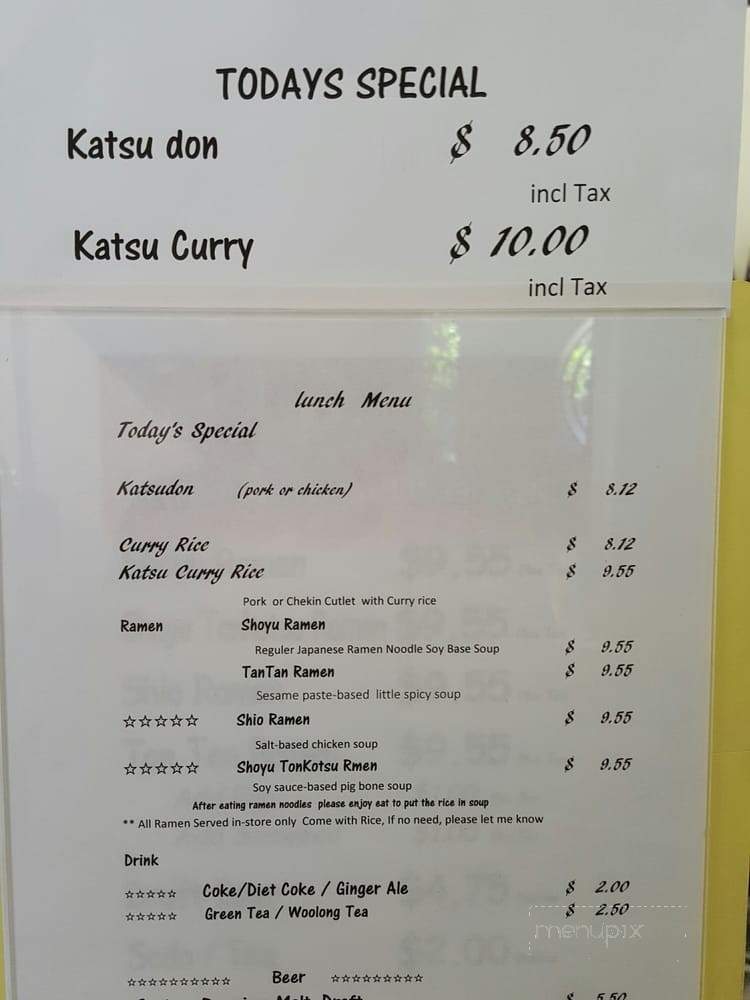 TODAYS SPECIAL
Katsu don $ 8.50
incl Tax
Katsu Curry $ 10.00
incl Tax
lunch Menu
Today's Special
Katsudon (pork or chicken) $ 8.12
Curry Rice $ 8.12
Katsu Curry Rice $ 9.55
Pork or Chekin Cutlet with Curry rice
Ramen Shoyu Ramen
Reguler Japanese Ramen Noodle Soy Base Soup $ 9.55
TanTan Ramen $ 9.55
Sesame paste-based little spicy soup
☆☆☆☆☆ Shio Ramen $ 9.55
Salt-based chicken soup
☆☆☆☆☆ Shoyu TonKotsu Rmen $ 9.55
Soy sauce-based pig bone soup
After eating ramen noodles please enjoy eat to put the rice in soup
** All Ramen Served in-store only Come with Rice, If no need, please let me know
Drink
☆☆☆☆☆ Coke/Diet Coke / Ginger Ale $ 2.00
☆☆☆☆☆ Green Tea / Woolong Tea $ 2.50
menupix
☆☆☆☆☆☆☆☆☆☆ Beer ☆☆☆☆☆☆☆☆☆
Malt Draft $ 5.50